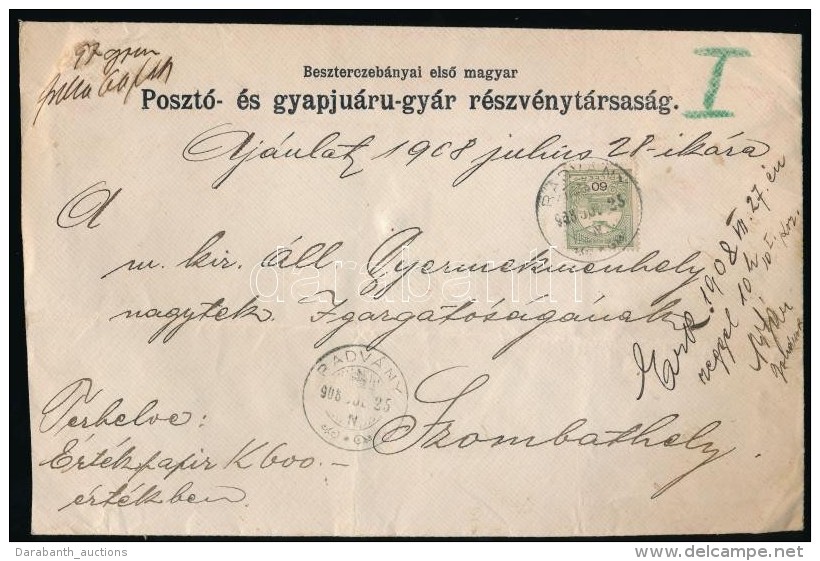 97 gram
Beszterczebányai első magyar
Posztó- és gyapjuáru-gyár részvénytársaság.
I
Ajánlat 1908 július 28-ikára
RADVÁNY
908 JUL 25
N
60
A
m. kir. áll Gyermekmenhely
nagytek. Igazgatóságának
Szombathely.
RADVÁNY
908 JUL 25
N
Terhelve:
Értékpapír K 600.-
értékben.
Érk. 1908 VII. 27.-én
reggel 10 h
darabanth
Darabanth_auctions
http://www.delcampe.net